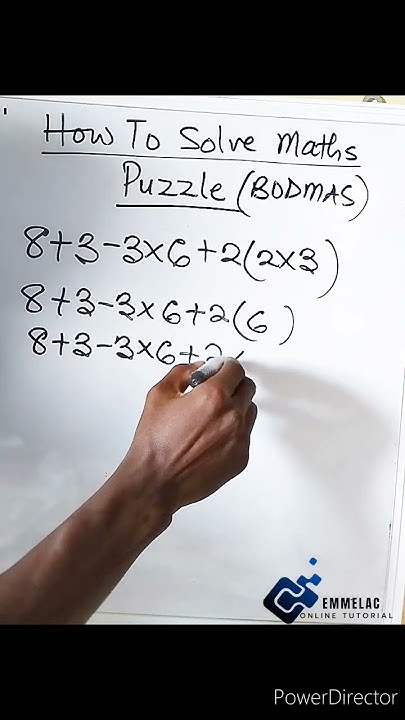 How To Solve Maths
Puzzle (BODMAS)
8+3-3×6+2(2×3)
8+3-3×6+2(6)
8+3-3×6+2
EMMELAC
ONLINE TUTORIAL
PowerDirector